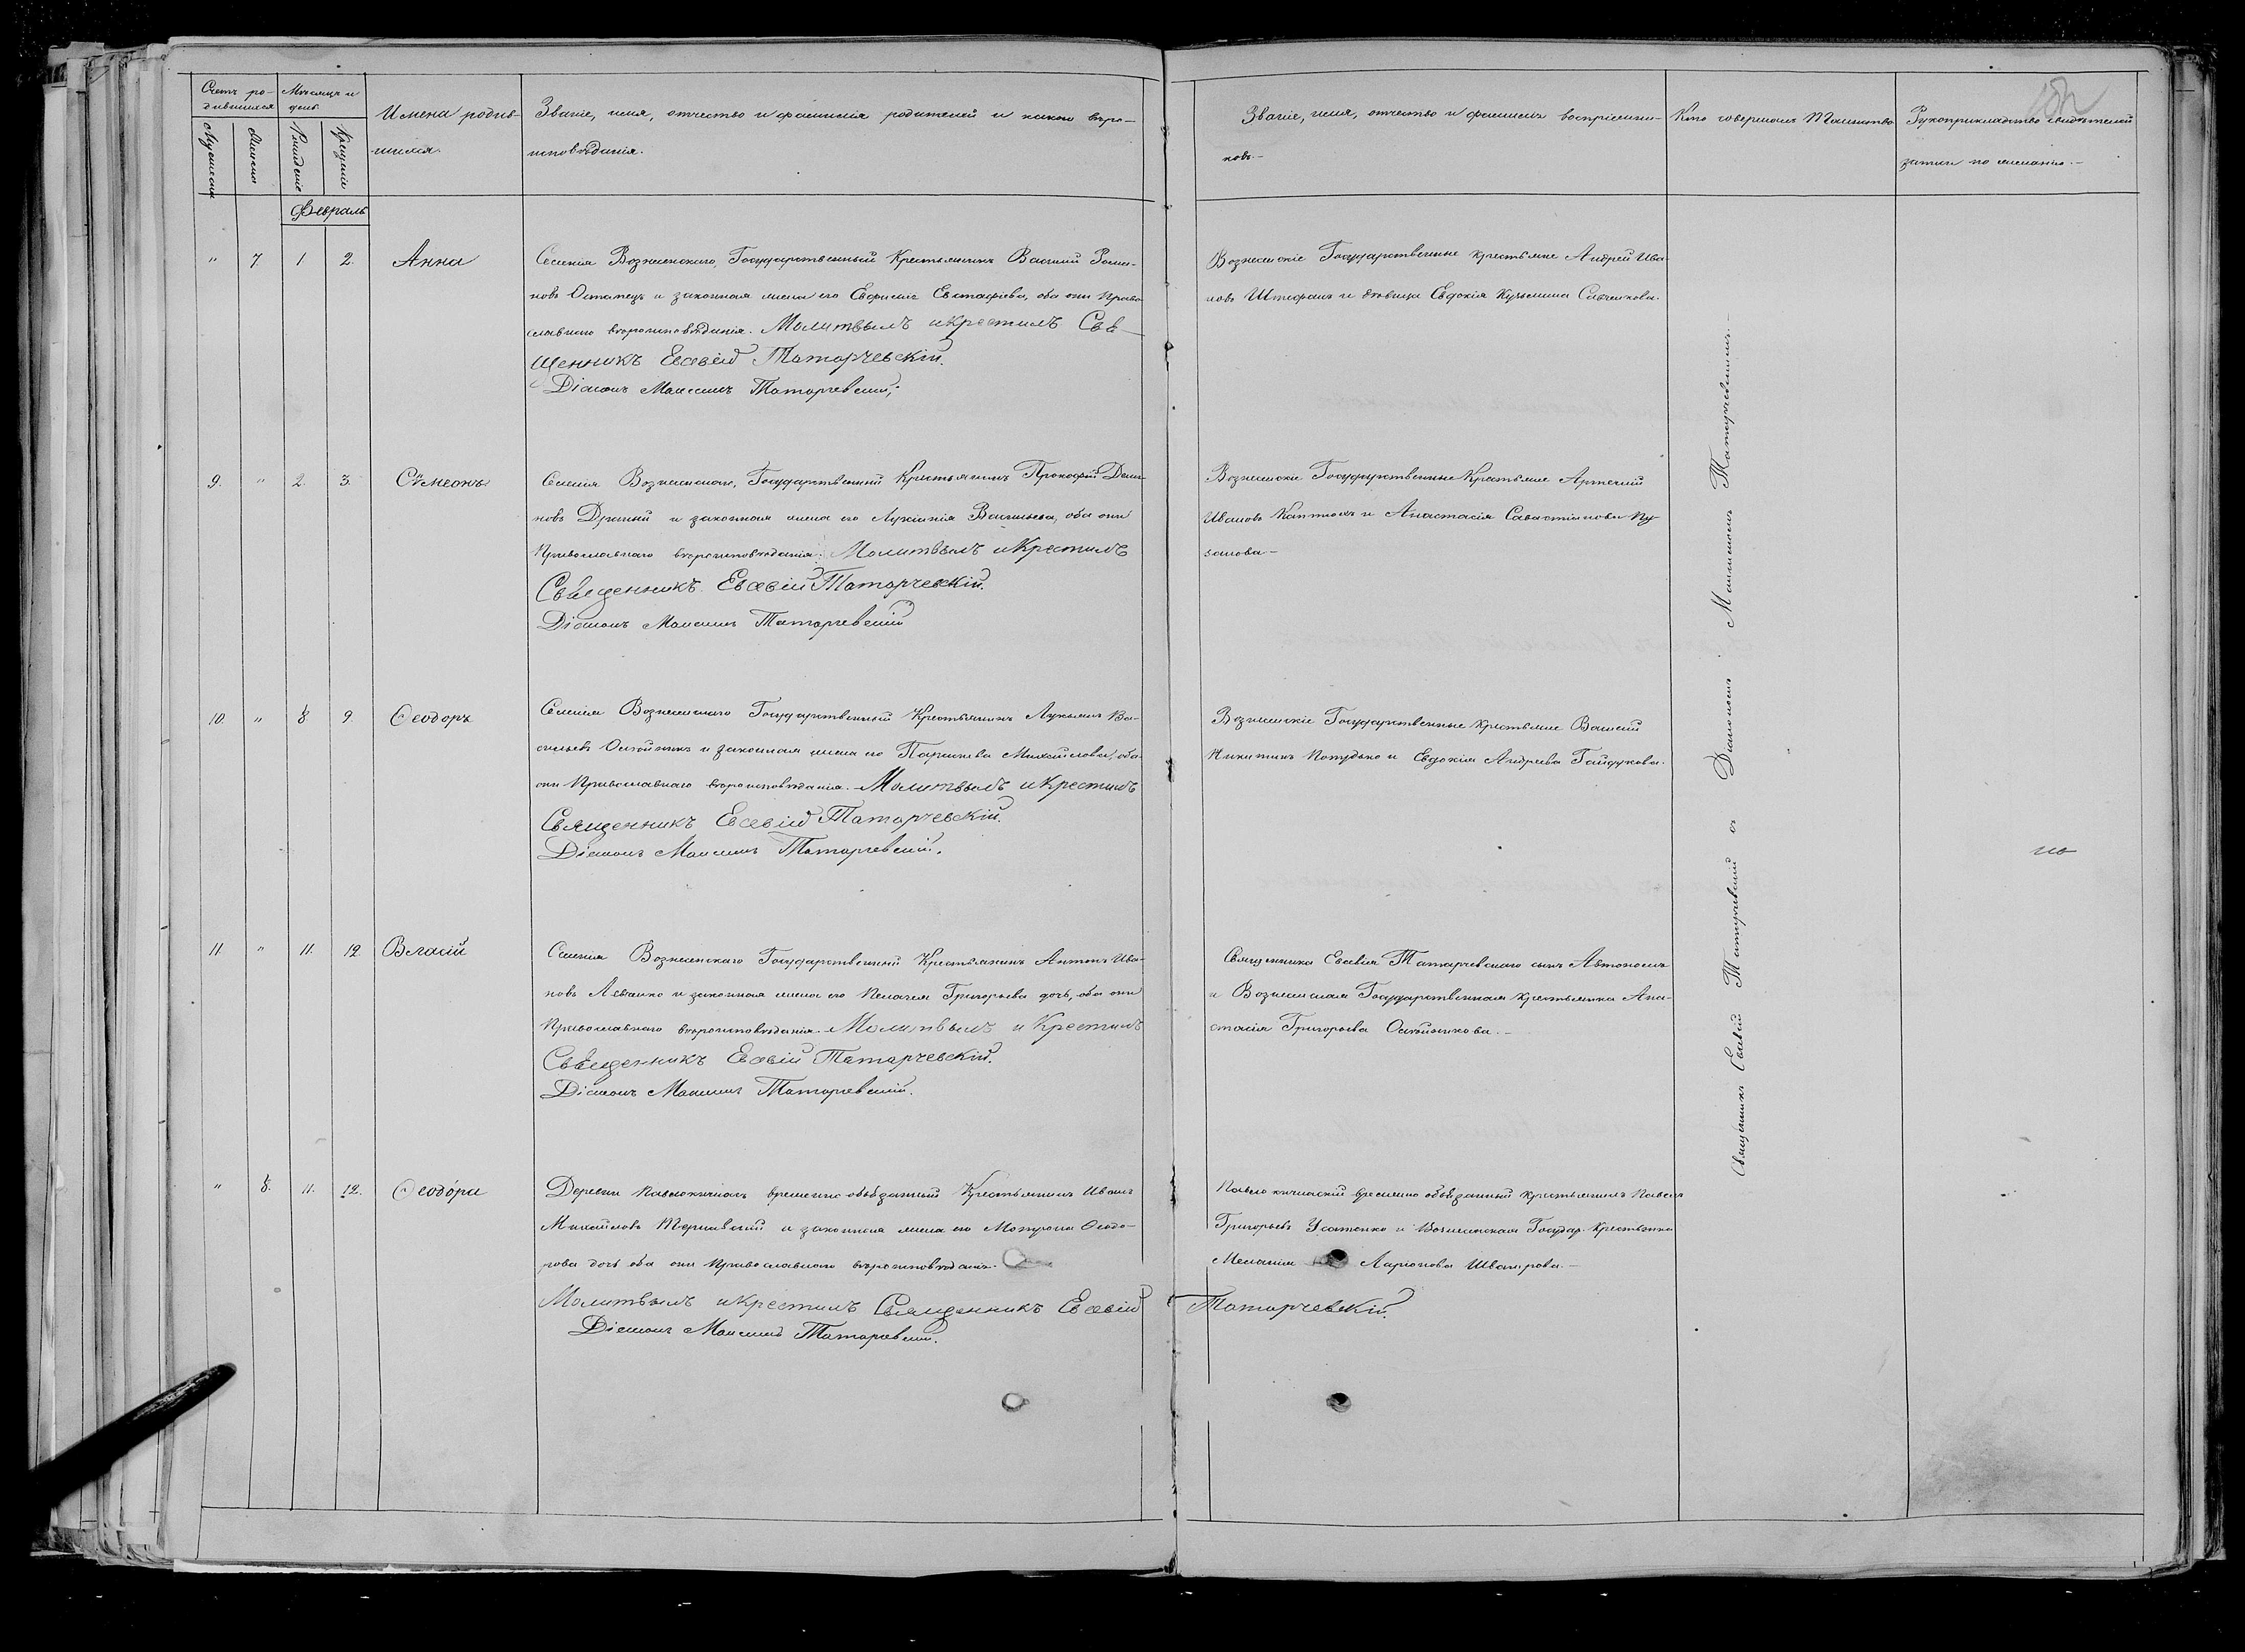 Счетъ ро-
дившихся
Мѣсяцъ и
день.
Имена родив-
шихся.
Званіе, имя, отчество и фамилія родителей и какого вѣро-
исповѣданія.
Званіе, имя, отчество и фамилія воспріемни-
ковъ.-
Кто совершалъ Таинство
Рукоприкладство свидѣтелей
записи по желанію.-
Рожденіе
Крещеніе
Февраль
" 7 1 2. Анна
Селенія Вознесенскаго, Государственный Крестьянинъ Василій
новъ Остапецъ и законная жена его Евфимія Евстафіева, оба они Право
славнаго вѣроисповѣданія. Молитвылъ икрестилъ Свѣ-
щенникъ Евсевій Татарчевскій.
Діаконъ Максимъ Татарчевскій;
Вознесенскіе Государственные крестьяне Андрей Ива
новъ Штефанъ и дѣвица Евдокія Кузьмина Савченкова.
9. " 2. 3. Сѵмеонъ
Селенія Вознесенскаго, Государственный Крестьянинъ Прокофій
новъ и законная жена его Лукіанія Васильева, оба они
Православнаго вѣроисповѣданія. Молитвылъ икрестилъ
Свѣщенникъ Евсевій Татарчевскій.
Діаконъ Максимъ Татарчевскій
Вознесенскіе Государственные Крестьяне Артемій
Ивановъ и Анастасія Савастіанова Пу
занова-
10. " 8 9. Ѳеодоръ
Селенія Вознесенскаго Государственный Крестьянинъ Лукьянъ Ва-
сильевъ и законная жена его Параскева Михайлова, оба
они Православнаго вѣроисповѣданія. Молитвылъ икрестилъ
Священникъ Евсевій Татарчевскій.
Діаконъ Максимъ Татарчевскій.
Вознесенскіе Государственные крестьяне Василій
Никитинъ и Евдокія Андреева Гайдукова.
11. " 11. 12. Власій
Селенія Вознесенскаго Государственный Крестьянинъ Антонъ Ива-
новъ и законная жена его Пелагея Григорьева дочь, оба они
Православнаго вѣроисповѣданія. Молитвылъ и Крестилъ
Свѣщенникъ Евсевій Татарчевскій.
Діаконъ Максимъ Татарчевскій.
Священника Евсевія Татарчевскаго сынъ Автономъ
и Вознесенская Государственная крестьянка Ана-
стасія Григорьева
" 8. 11. 12. Ѳеодо́ра
Деревни временно обязанный Крестьянинъ Иванъ
Михайловъ и законная жена его Матрона Ѳеодо-
рова дочь оба они Православнаго вѣроисповѣданія.
Молитвылъ икрестилъ Священникъ Евсевій Татарчевскій.
Діаконъ Максимъ Татарчевскій.
временно обязанный крестьянинъ Павелъ
Григорьевъ Усатенко и Вознесенская Государ. Крестьянка
Меланія Ларіонова
Священникъ Евсевій Татарчевскій съ Діакономъ Максимомъ Татарчевскимъ.-